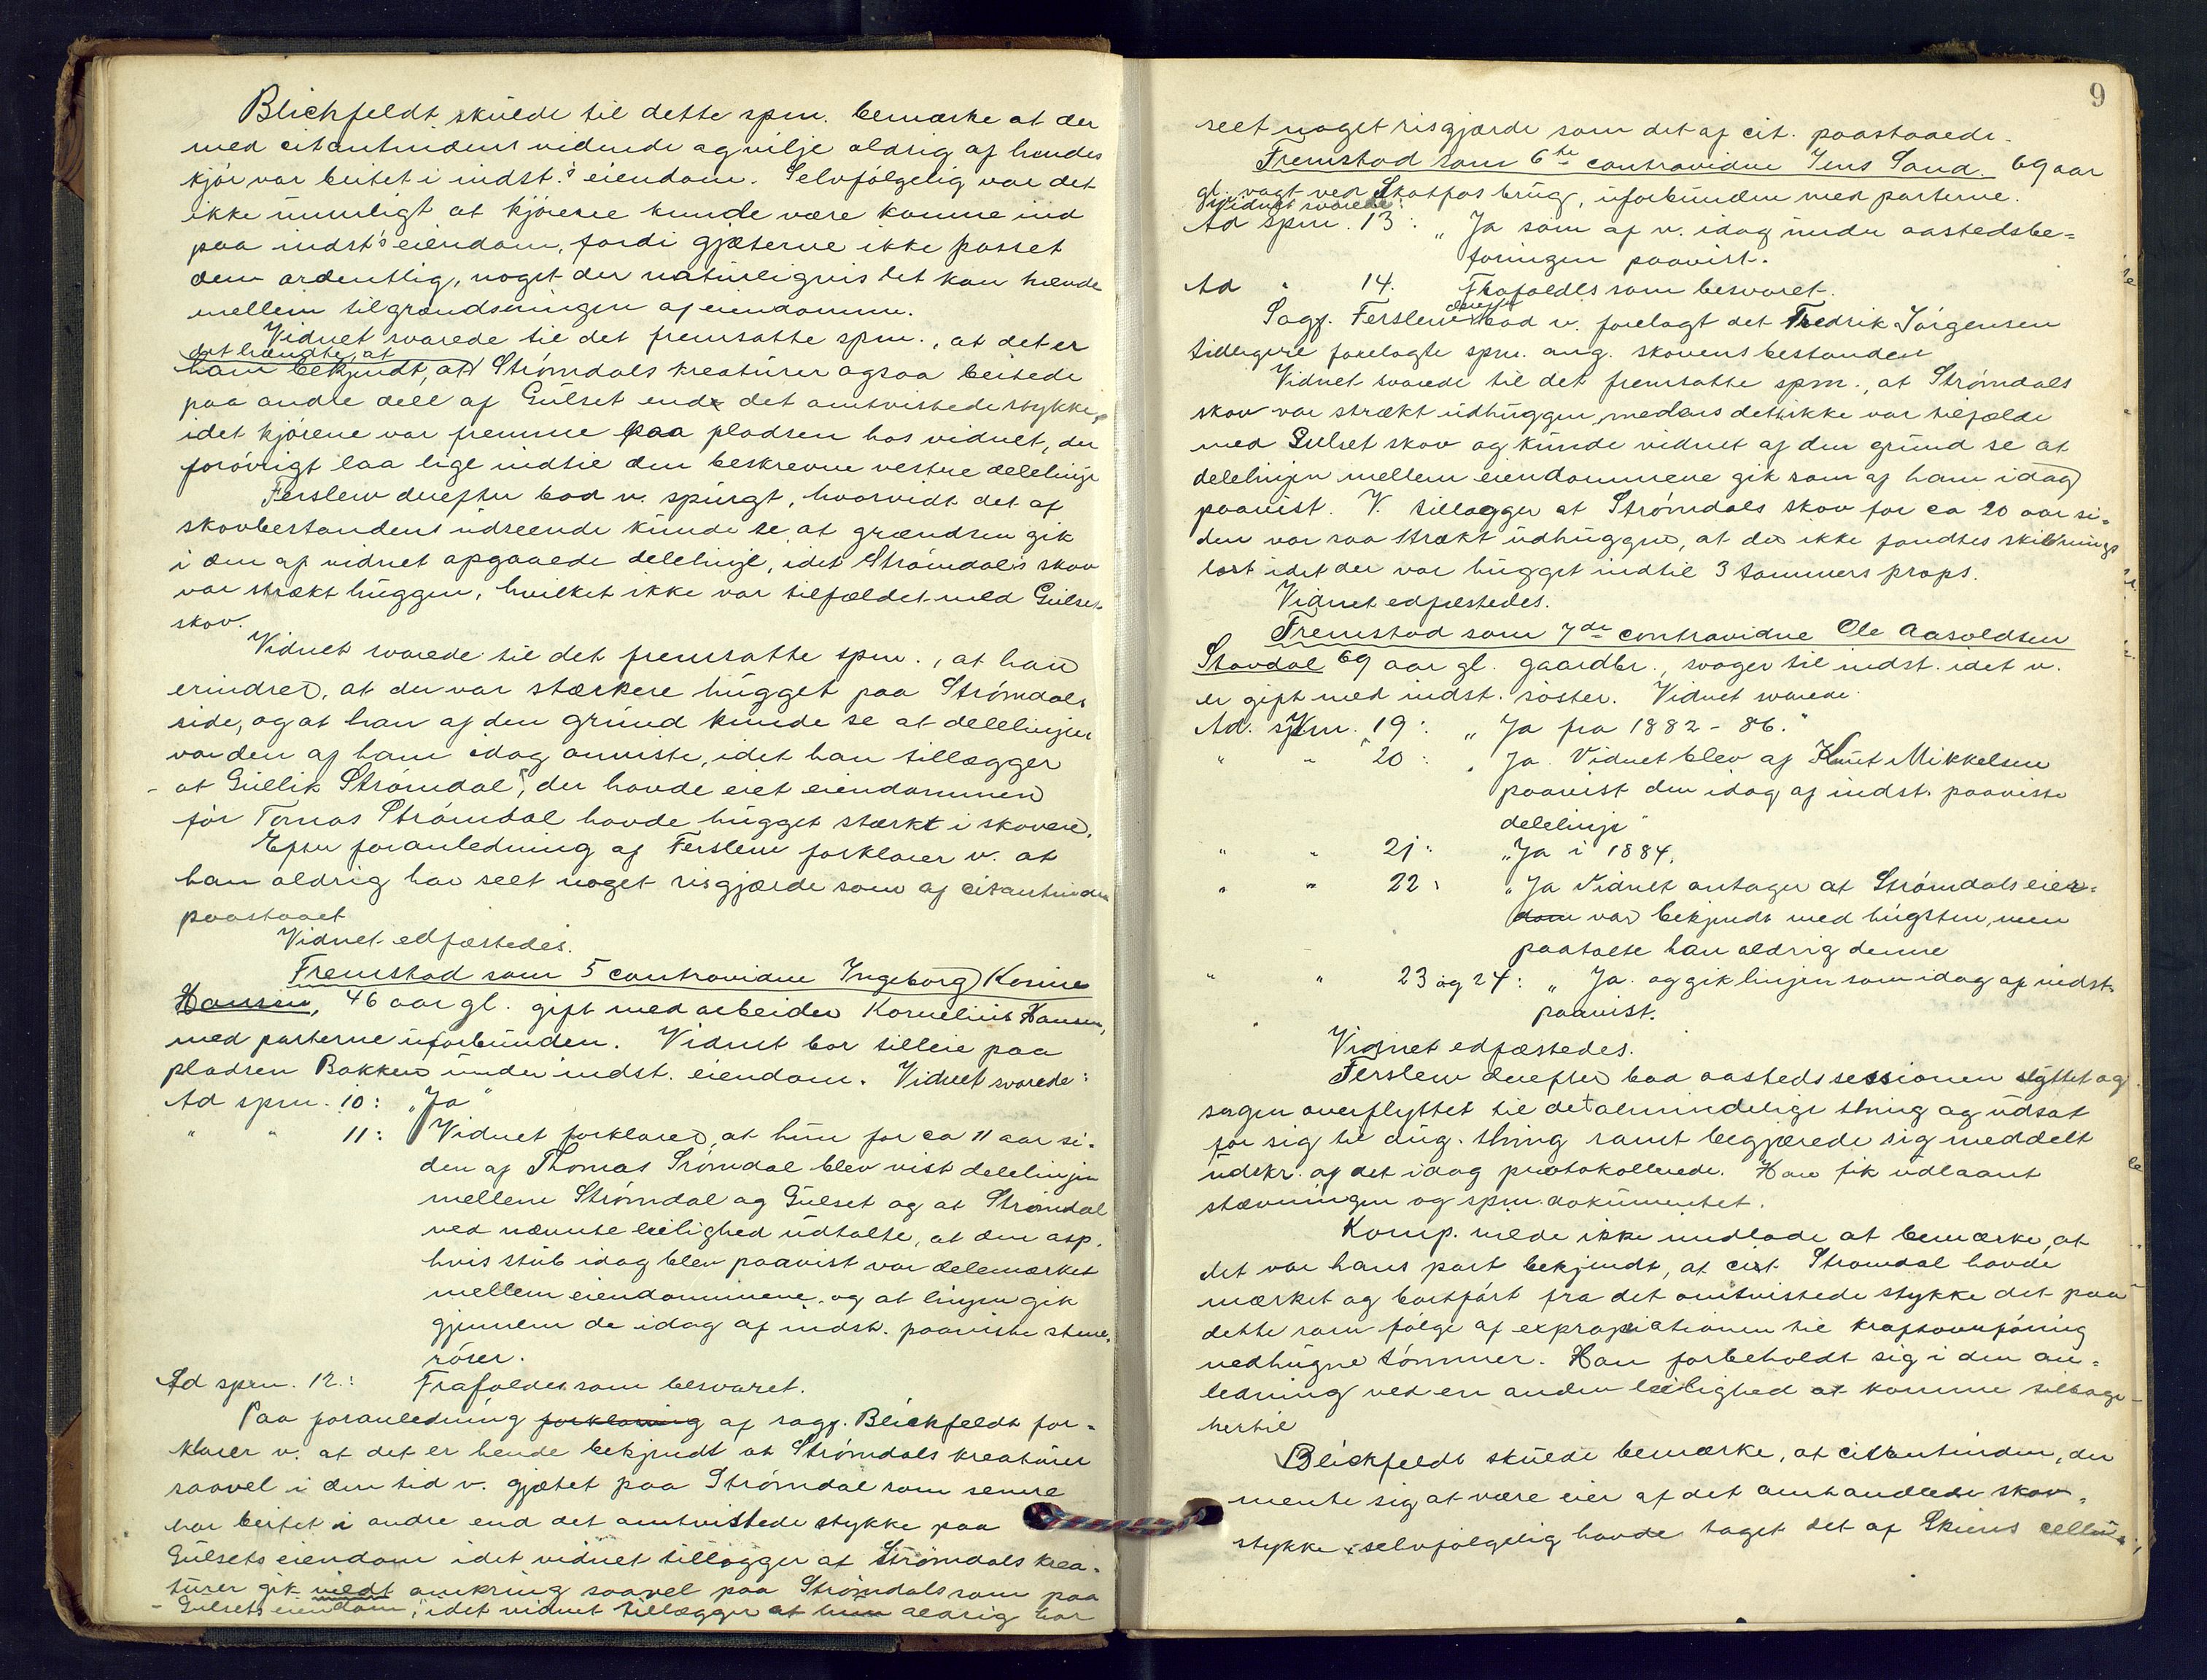 Blichfeldt skulde til dette spm. bemærke at der
med citantindens vidende og vilje aldrig af hendes
kjör var beitet i indst.'s eiendom. Selvfölgelig var det
ikke umuligt at kjörene kunde være komne ind
paa indst's eiendom, fordi gjæterne ikke passet
dem ordentlig, noget der naturligvis let kan hænde
mellem tilgrændsningen af eiendomme.
Vidnet svarede til det fremsatte spm., at det er
det hændte, at
ham bekjendt, at Strömdals kreaturer ogsaa beitede
paa andre dele af Gulset end det omtvistede stykke,
idet kjörene var fremme paa pladsen hos vidnet, der
forövrigt laa lige indtil den beskrevne vestre delelinje
Ferslew derefter bad v. spurgt, hvorvidt det af
skovbestandens udseende kunde se, at grændsen gik
i den af vidnet opgaaede delelinje, idet Strömdals skov
var strækt huggen, hvilket ikke var tilfældet med Gulset
skov.
Vidnet svarede til det fremsatte spm., at han
erindrer, at der var stærkere hugget paa Strömdals
side, og at han af den grund kunde se at delelinjen
var den af ham idag anviste, idet han tillægger
at Gullik Strömdal, der havde eiet eiendommen
för Tomas Strömdal havde hugget stærkt i skoven.
Efter foranledning af Ferslew forklarer v. at
han aldrig har seet noget risgjærde som af citantinden
paastaaet
Vidnet edfæstedes.
Fremstod som 5 contravidne Ingeborg Kosine
Hansen, 46 aar gl. gift med arbeider Kornelius Hansen,
med parterne uforbunden. Vidnet bor tilleie paa
pladsen Bakken under indst. eiendom. Vidnet svarede:
Ad spm. 10: „Ja"
" " 11: Vidnet forklarer, at hun for ca 11 aar si-
den af Thomas Srömdal blev vist delelinjen
mellem Strömdal og Gulset og at Strömdal
ved nævnte leilighed udtalte, at den asp,
hvis stub idag blev paavist var delemærket
mellem eiendommene, og at linjen gik
gjennem de idag af indst. paaviste stene-
röser.
Ad spm. 12.: Frafaldes som besvaret.
Paa foranledning forklaring af sagf. Blickfeldt for-
klarer v. at det er hende bekjendt at Strömdals kreaturer
saavel i den tid v. gjætet paa Strömdal som senere
har beitet i andre end det omtvistede stykke paa
Gulsets eiendom idet vidnet tillægger at Strömdals krea-
turer gik vildt omkring saavel paa Strömdals som paa
Gulsets eiendom, idet vidnet tillægger at hun aldrig har
9
seet noget risgjærde som det af cit. paastaaede.
Fremstod som 6te contravidne Jens Sand. 69 aar
gl. vagt ved Skotfos brug, uforbunden med parterne.
Vidnet svarede:
Ad spm. 13: „Ja som af v. idag under aastedsbe-
faringen paavist.
Ad " 14. Frafaldes som besvaret.
Sagf. Ferslew derefter bad v. forelagt det Fredrik Jörgensen
tidligere forelagte spm. ang. skovens bestanden
Vidnet svarede til det fremsatte spm., at Strömdals
skov var strækt udhuggen, medens dette ikke var tilfælde
med Gulset skov og kunde vidnet af den grund se at
delelinjen mellem eiendommene gik som af ham idag
paavist. V. tillægger at Strömdals skov for ca 20 aar si-
den var saa strækt udhuggen, at der ikke fandtes skibnings
last idet der var hugget indtil 3 tommers props.
Vidnet edfæstedes.
Fremstod som 7de contravidne Ole Aasoldsen
Stavdal 69 aar gl. gaardbr., svoger til indst. idet v.
er gift med indst. söster. Vidnet svarede
Ad. spm. 19: „Ja fra 1882 - 86."
" " 20: „Ja. Vidnet blev af Knut Mikkelsen
paavist den idag af indst. paaviste
delelinje"
" " 21: „Ja i 1884.
" " 22: „Ja Vidnet antager at Strömdals eier-
dom var bekjendt med hugsten, men
paatalte han aldrig denne
" " 23 og 24: „Ja. og gik linjen som idag af indst.
paavist.
Vidnet edfæstedes.
Ferslew derefter bad aastedssessionen slyttet og
sagen overflyttet til det almindelige thing og udsat
for sig til aug. thing samt begjærede sig meddelt
udskr. af det idag protokollerede. Han fik udlaant
stævningen og spm. dokumentet.
Komp. vilde ikke undlade at bemærke, at
det var hans part bekjendt, at cit. Strömdal havde
mærket og bortfört fra det omtvistede stykke det paa
dette som fölge af expropriationen til kraftoverföring
nedhugne tömmer. Han forbeholdt sig i den an-
ledning ved en anden leilighed at komme tilbage
hertil
Blickfeldt skulde bemærke, at citantinden, der
mente sig at være eier af det omhandlede skov-
stykke selvfölgelig havde taget det af Skiens cellulo-